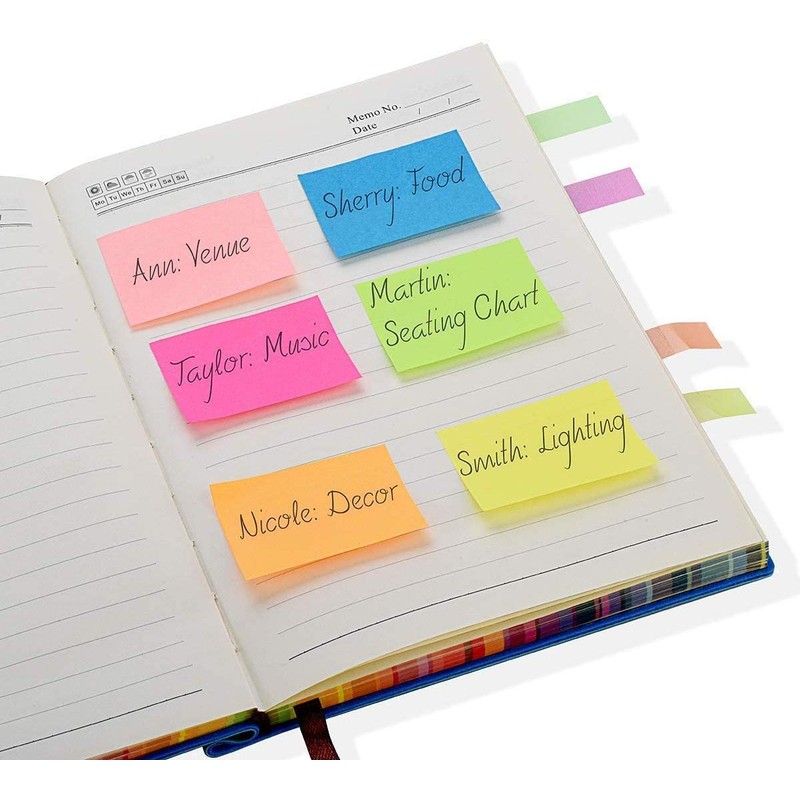 Memo No.
Date / /
Mo Tu We Th Fr Sa Su
Ann: Venue
Sherry: Food
Taylor: Music
Martin:
Seating Chart
Nicole: Decor
Smith: Lighting